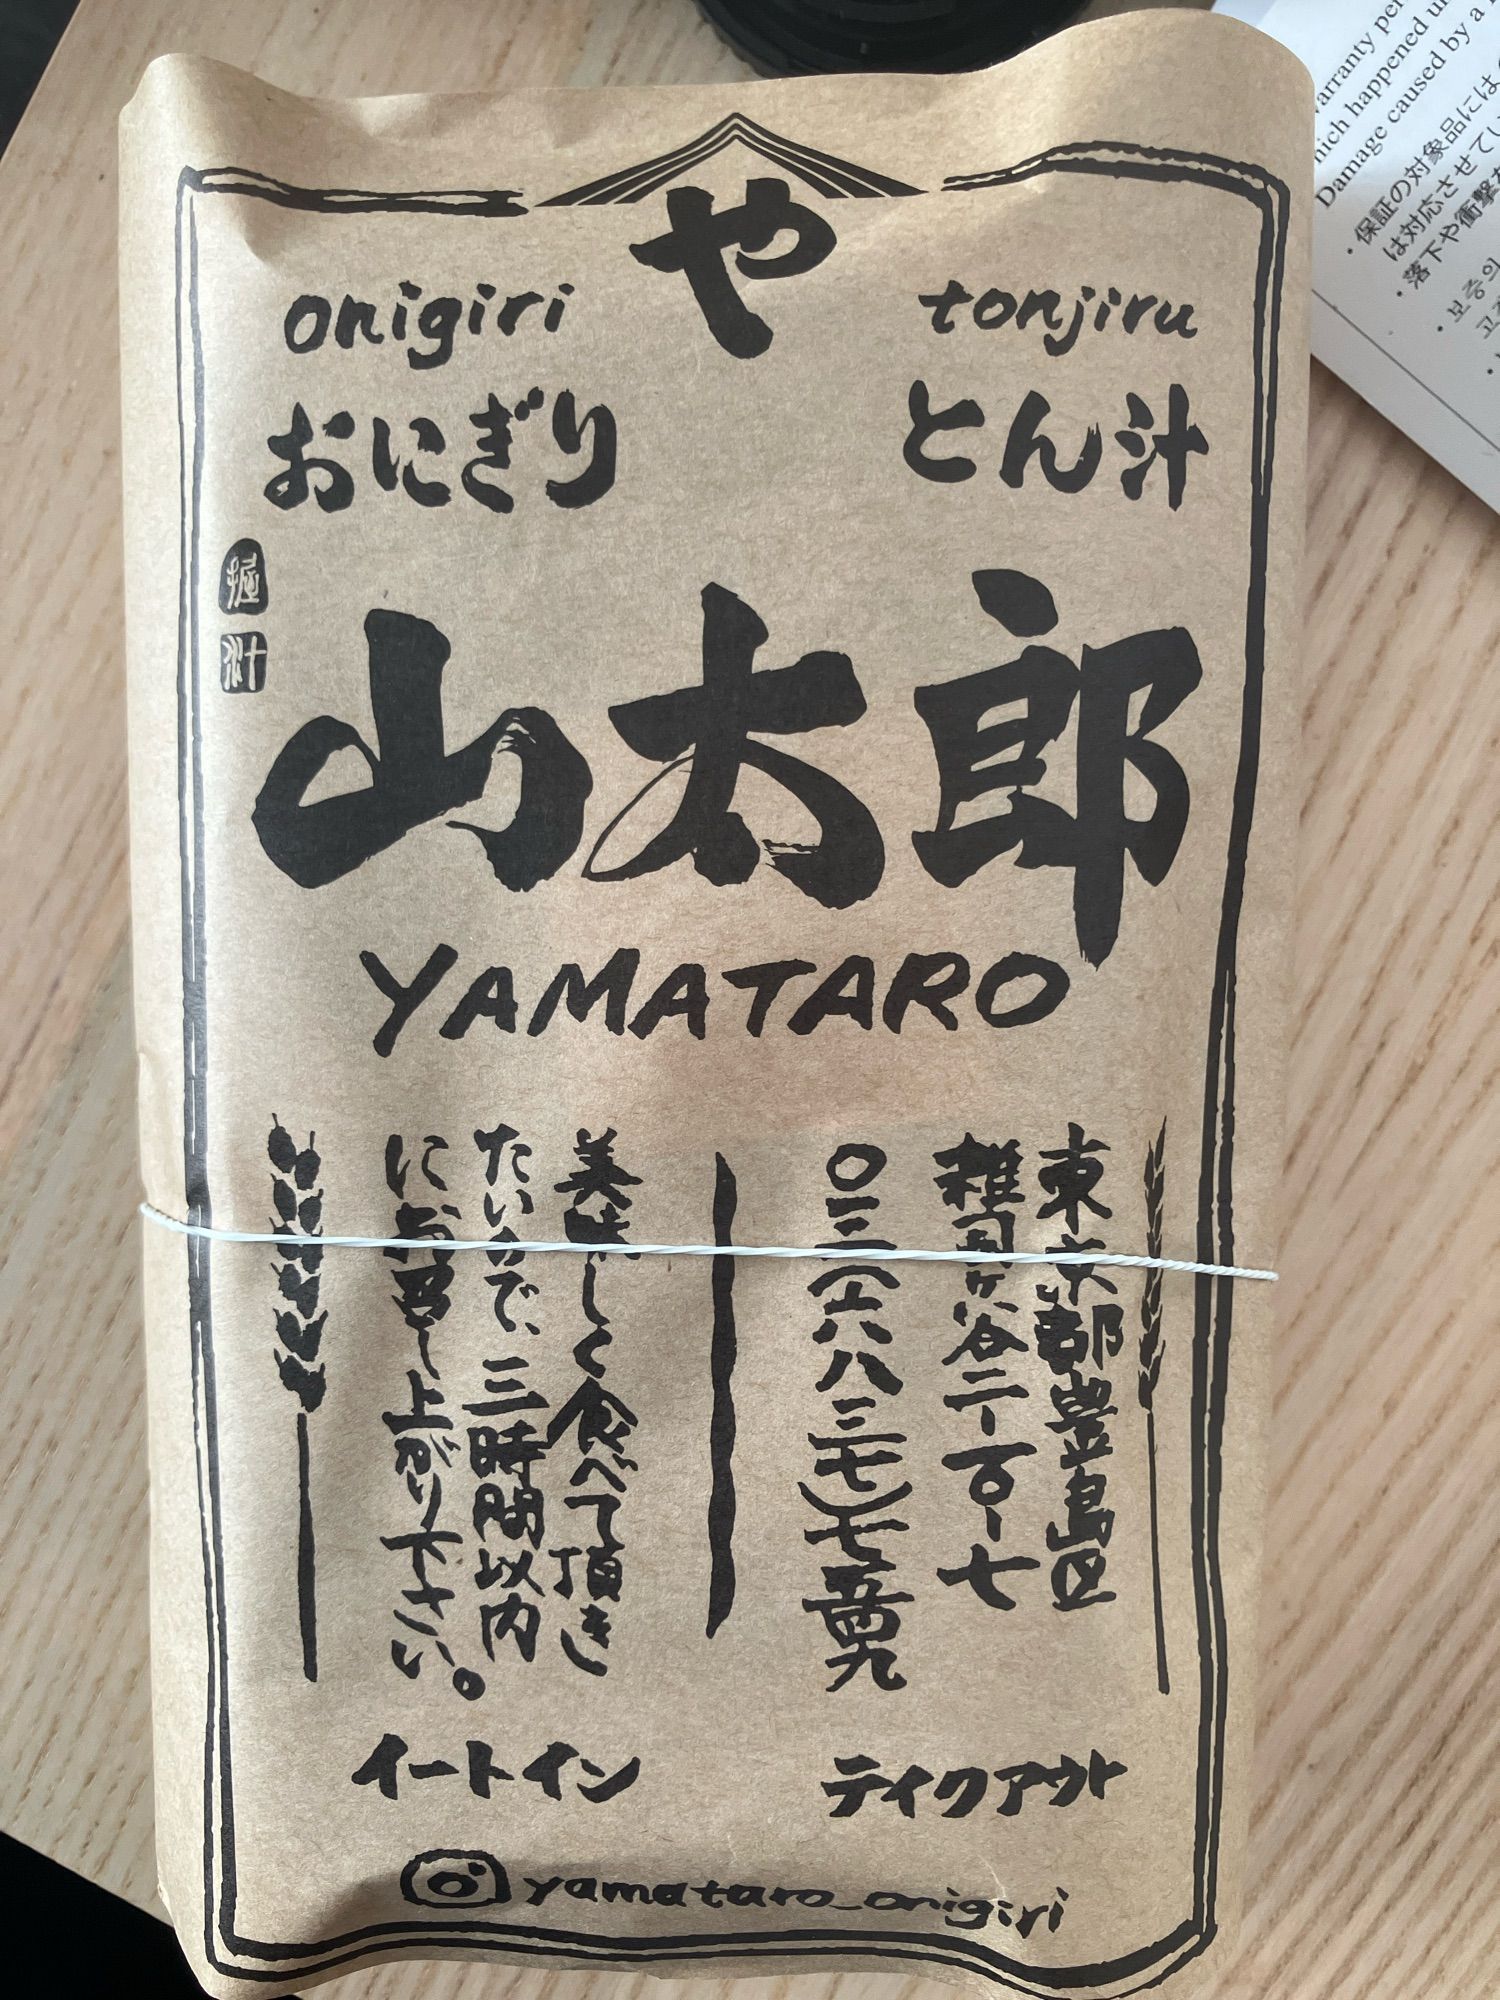 や
onigiri
tonjiru
おにぎり
とん汁
握
汁
山太郎
YAMATARO
東京都豊島区
雑司ヶ谷二-一〇-七
〇三(六八三七)七
美味しく食べて頂き
たいので、三時間以内
にお召し上がり下さい。
イートイン
テイクアウト
yamataro_onigiri
arranty per
hich happened u
Damage caused by a
・保証の対象品には
は対応させてい
・落下や衝撃
・보증의